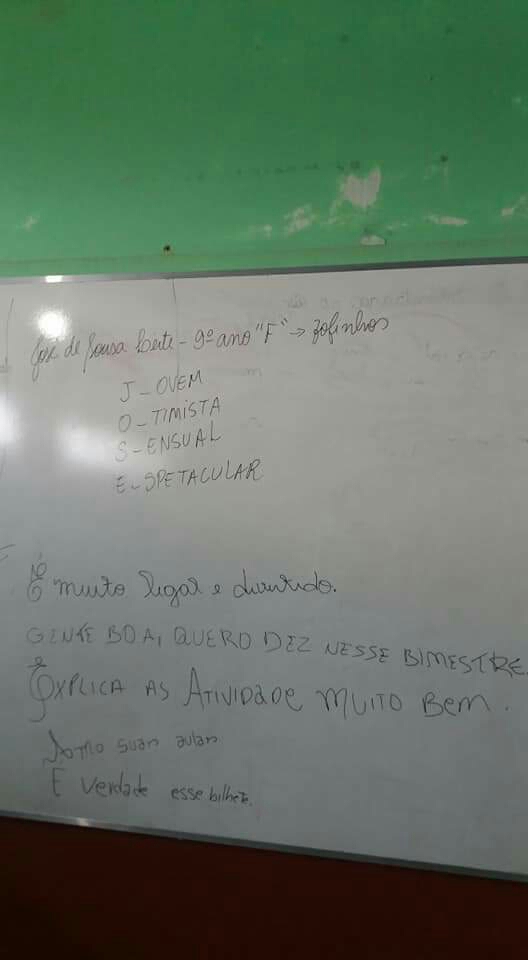 José de Sousa Leite - 9º ano "F" → Zofinhos
J - OVEM
O - TIMISTA
S - ENSUAL
E - SPETACULAR
É muito legal e divertido.
GENTE BOA, QUERO DEZ NESSE BIMESTRE.
EXPLICA AS ATIVIDADE MUITO BEM.
Amo suas aulas
É verdade esse bilhete.